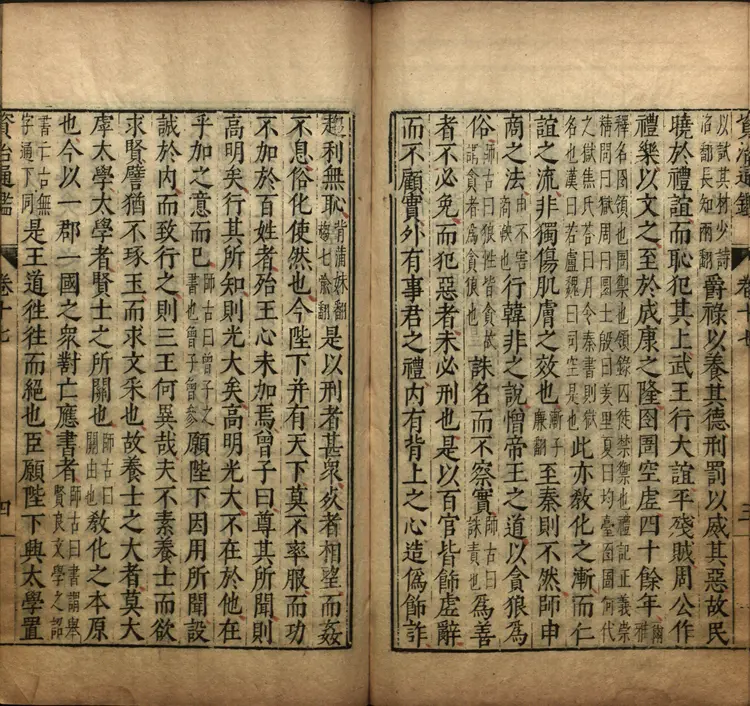 資治通鑑 卷十七 三
以試其材少詩沼翻長知兩翻爵祿以養其德刑罰以威其惡故民
曉於禮誼而恥犯其上武王行大誼平殘賊周公作
禮樂以文之至於成康之隆囹圄空虛四十餘年爾雅
釋名囹領也圄禦也領錄囚徒禁禦也禮記正義崇精問曰獄周曰圜土殷曰羑里夏曰均臺囹圄何代
之獄焦氏荅曰月令秦書則獄名也漢曰若盧魏曰司空是也此亦教化之漸而仁
誼之流非獨傷肌膚之效也漸子廉翻至秦則不然師申
商之法申不害商鞅也行韓非之說憎帝王之道以貪狼爲
俗師古曰狼性皆貪故謂貪者爲貪狼也誅名而不察實師古曰誅責也爲善
者不必免而犯惡者未必刑也是以百官皆飾虛辭
而不顧實外有事君之禮内有背上之心造偽飾詐
趨利無恥背蒲妹翻趨七喻翻是以刑者甚衆死者相望而姦
不息俗化使然也今陛下并有天下莫不率服而功
不加於百姓者殆王心未加焉曾子曰尊其所聞則
高明矣行其所知則光大矣高明光大不在於他在
乎加之意而已師古曰曾子之書也曾子曾參願陛下因用所聞設
誠於内而致行之則三王何異哉夫不素養士而欲
求賢譬猶不琢玉而求文采也故養士之大者莫大
虖太學太學者賢士之所關也師古曰關由也教化之本原
也今以一郡一國之衆對亡應書者師古曰書謂舉賢良文學之詔
書亡古無字通下同是王道往往而絕也臣願陛下興太學置
資治通鑑 卷十七 四